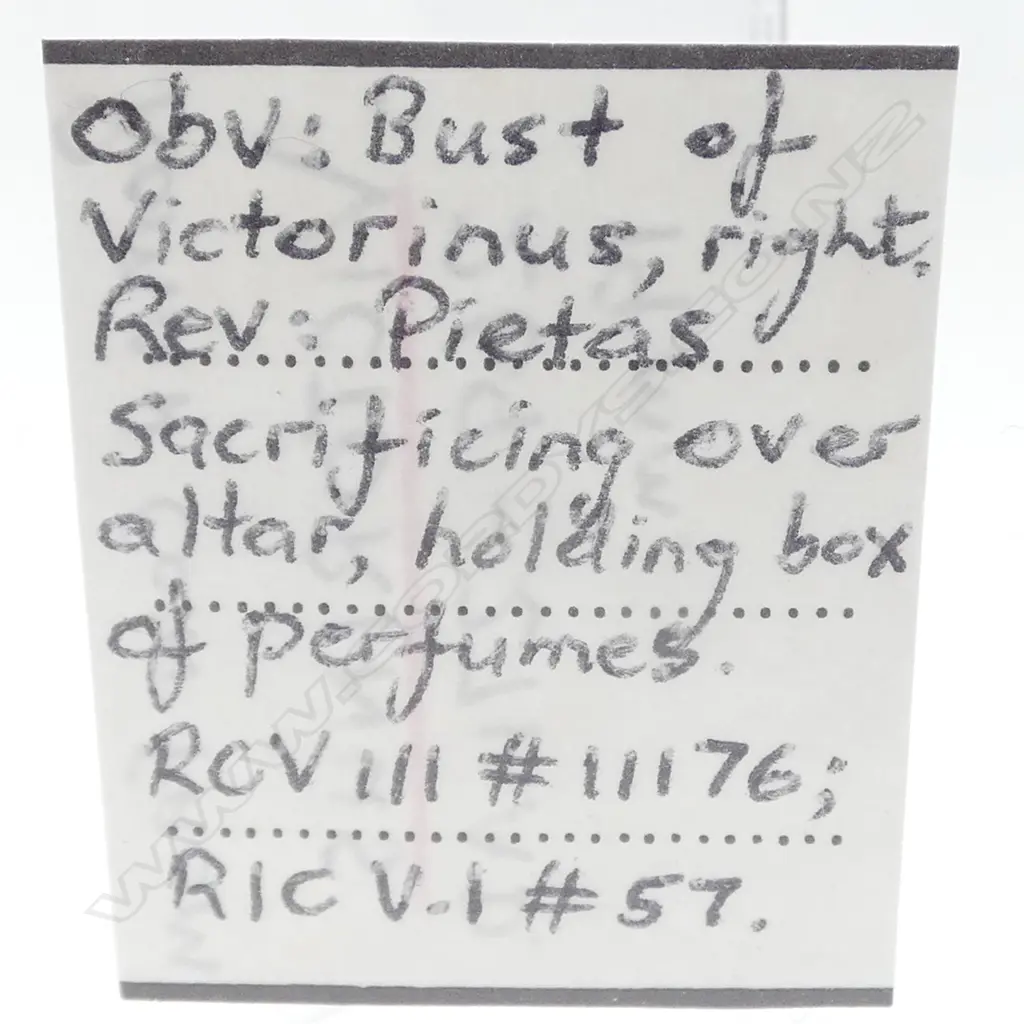 Obv: Bust of
Victorinus, right.
Rev: Pietas
Sacrificing over
altar, holding box
of perfumes.
RCV III # 11176;
RIC V.I # 57.
WWW.CORDYS.CO.NZ